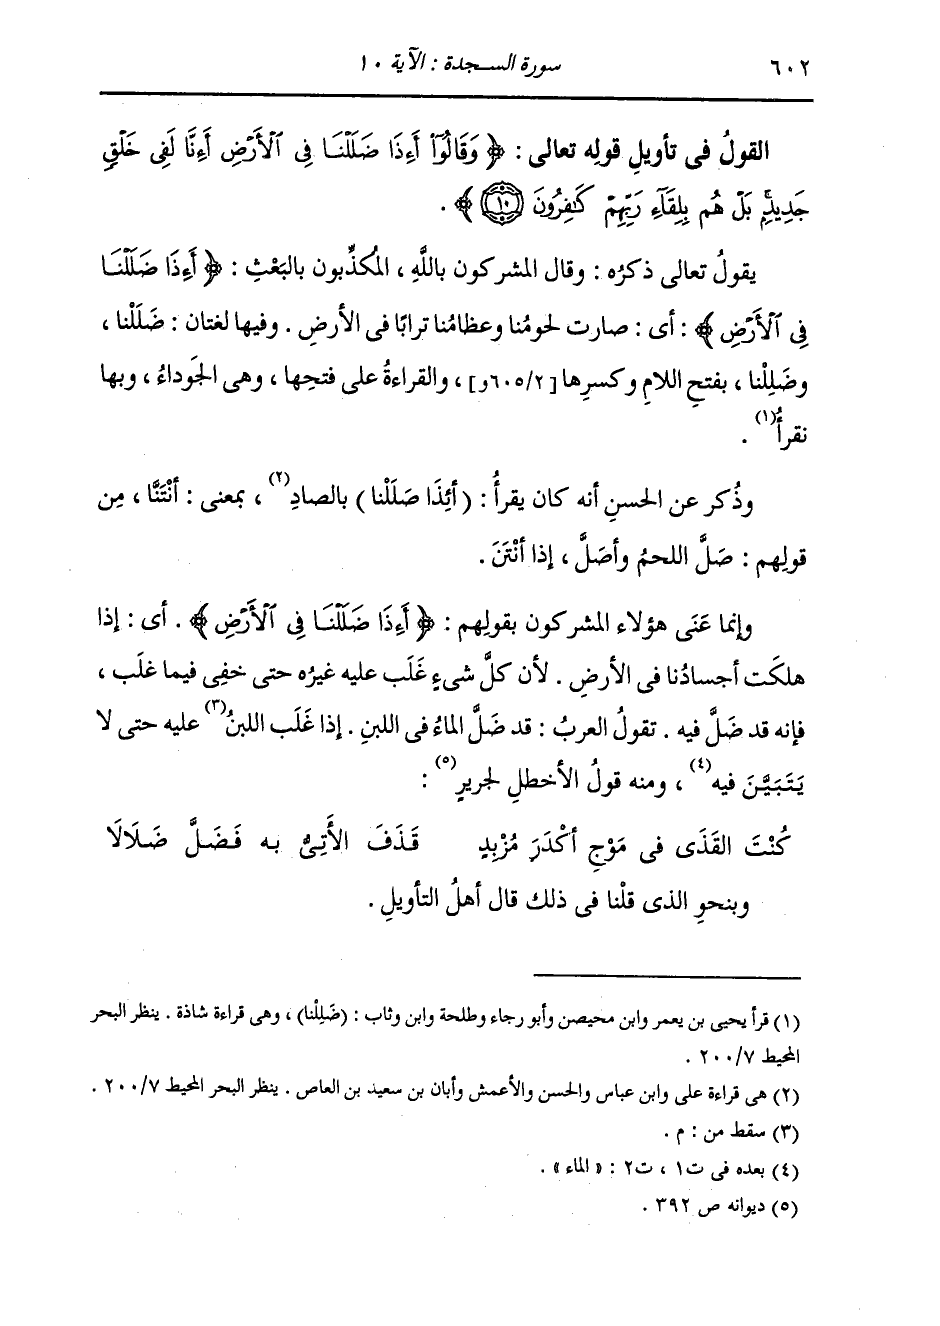 ٦٠٢ سورة السجدة : الآية ١٠
القولُ فى تأويلِ قولِه تعالى : ﴿ وَقَالُوٓا۟ أَءِذَا ضَلَلْنَا فِى ٱلْأَرْضِ أَءِنَّا لَفِى خَلْقٍ
جَدِيدٍۭ بَلْ هُم بِلِقَآءِ رَبِّهِمْ كَـٰفِرُونَ ١٠ ﴾ .
يقولُ تعالى ذكرُه : وقال المشركون باللَّهِ ، المكذِّبون بالبَعْثِ : ﴿ أَءِذَا ضَلَلْنَا
فِى ٱلْأَرْضِ ﴾ : أى : صارت لحومُنا وعظامُنا ترابًا فى الأرضِ . وفيها لغتان : ضَلَلْنا ،
وضَلِلْنا ، بفتحِ اللامِ وكسرِها [ ٦٠٥/٢و] ، والقراءةُ على فتحِها ، وهى الجَوداءُ ، وبها
نقرأُ(١) .
وذُكر عن الحسنِ أنه كان يقرأُ : ( أئِذَا صَلَلْنا ) بالصادِ(٢) ، بمعنى : أنْتَنَّا ، مِن
قولِهم : صَلَّ اللحمُ وأصَلَّ ، إذا أنْتَنَ .
وإنما عَنَى هؤلاء المشركون بقولِهم : ﴿ أَءِذَا ضَلَلْنَا فِى ٱلْأَرْضِ ﴾ . أى : إذا
هلَكَت أجسادُنا فى الأرضِ . لأن كلَّ شىءٍ غَلَب عليه غيرُه حتى خفِى فيما غلَب ،
فإنه قد ضَلَّ فيه . تقولُ العربُ : قد ضَلَّ الماءُ فى اللبنِ . إذا غَلَب اللبنُ(٣) عليه حتى لا
يَتَبَيَّنَ فيه(٤) ، ومنه قولُ الأخطلِ لجريرٍ(٥) :
كُنْتَ القَذَى فى مَوْجِ أكْدَرَ مُزْبِدٍ قَذَفَ الأَتِىُّ به فَضَلَّ ضَلَالَا
وبنحوِ الذى قلْنا فى ذلك قال أهلُ التأويلِ .
(١) قرأ يحيى بن يعمر وابن محيصن وأبو رجاء وطلحة وابن وثاب : (ضَلِلْنا) ، وهى قراءة شاذة . ينظر البحر
المحيط ٢٠٠/٧ .
(٢) هى قراءة على وابن عباس والحسن والأعمش وأبان بن سعيد بن العاص . ينظر البحر المحيط ٢٠٠/٧ .
(٣) سقط من : م .
(٤) بعده فى ت١ ، ت٢ : « الماء » .
(٥) ديوانه ص ٣٩٢ .